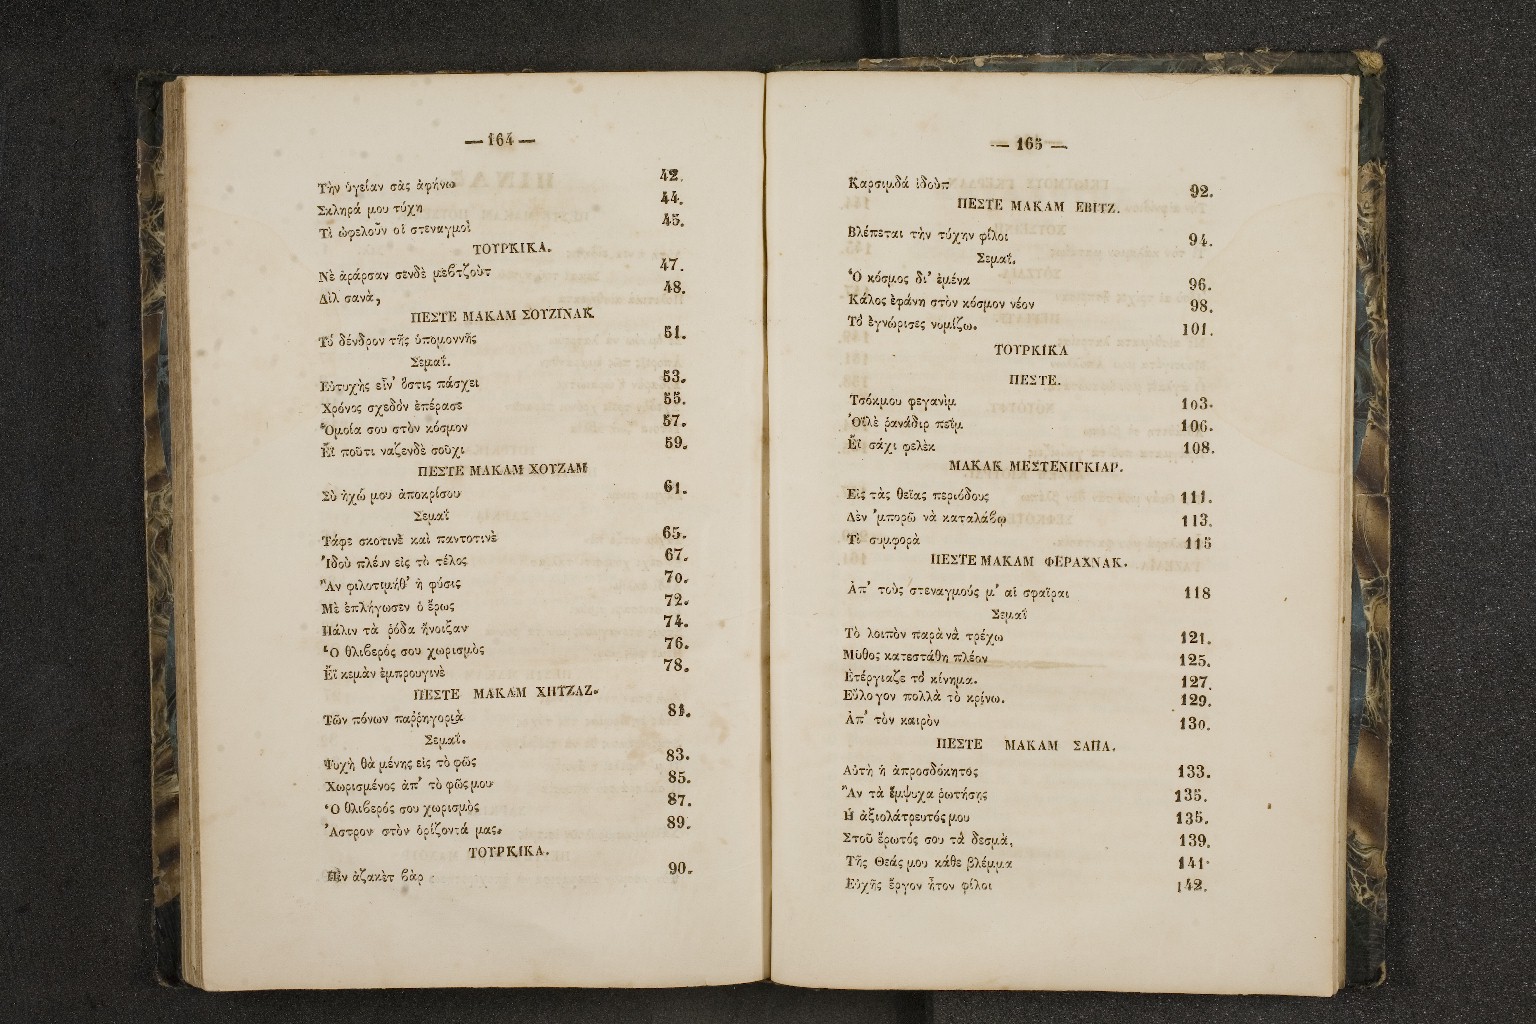 — 164 —
Τὴν ὑγείαν σᾶς ἀφήνω 42.
Σκληρά μου τύχη 44.
Τὶ ὠφελοῦν οἱ στεναγμοὶ 45.
ΤΟΥΡΚΙΚΑ.
Νὲ ἀράρσαν σενδὲ μεβτζοὺτ 47.
Δὶλ σανὰ, 48.
ΠΕΣΤΕ ΜΑΚΑΜ ΣΟΥΖΙΝΑΚ
Τό δένδρον τῆς ὑπομοννῆς 51.
Σεμαΐ.
Εὐτυχὴς εἶν' ὅστις πάσχει 53.
Χρόνος σχεδὸν ἐπέρασε 55.
Ὁμοία σου στὸν κόσμον 57.
Ἔϊ ποῦτι ναζενδὲ σοῦχι 59.
ΠΕΣΤΕ ΜΑΚΑΜ ΧΟΥΖΑΜ
Σὺ ἠχώ μου ἀποκρίσου 61.
Σεμαΐ
Τάφε σκοτινὲ καὶ παντοτινὲ 65.
Ἰδοὺ πλέων εἰς τὸ τέλος 67.
Ἂν φιλοτιμήθ' ἡ φύσις 70.
Μὲ ἐπλήγωσεν ὁ ἔρως 72.
Πάλιν τὰ ῥόδα ἤνοιξαν 74.
Ὁ θλιβερός σου χωρισμὸς 76.
Ἔϊ κεμὰν ἐμπρουγινὲ 78.
ΠΕΣΤΕ ΜΑΚΑΜ ΧΗΤΖΑΖ.
Τῶν πόνων παῤῥηγοριὰ 81.
Σεμαΐ.
Ψυχὴ θὰ μένης εἰς τὸ φῶς 83.
Χωρισμένος ἀπ' τὸ φῶς μου 85.
Ὁ θλιβερός σου χωρισμὸς 87.
Ἄστρον στὸν ὁρίζοντά μας. 89.
ΤΟΥΡΚΙΚΑ.
Πὲν ἀζακὲτ βὰρ 90.
— 165 —
Καρσιμδά ἰδοὺπ 92.
ΠΕΣΤΕ ΜΑΚΑΜ ΕΒΙΤΖ.
Βλέπεται τὴν τύχην φίλοι 94.
Σεμαΐ.
Ὁ κόσμος δι' ἐμένα 96.
Κάλος ἐφάνη στὸν κόσμον νέον 98.
Τὸ ἐγνώρισες νομίζω. 101.
ΤΟΥΡΚΙΚΑ
ΠΕΣΤΕ.
Τσόκμου φεγανὶμ 103.
Ὀϊλὲ ῥανάδιρ πεῒμ 106.
Ἔϊ σάχι φελὲκ 108.
ΜΑΚΑΚ ΜΕΣΤΕΝΙΓΚΙΑΡ.
Εἰς τὰς θείας περιόδους 111.
Δὲν 'μπορῶ νὰ καταλάβω 113.
Τὶ συμφορὰ 115
ΠΕΣΤΕ ΜΑΚΑΜ ΦΕΡΑΧΝΑΚ.
Ἀπ' τοὺς στεναγμούς μ' αἱ σφαῖραι 118
Σεμαΐ
Τὸ λοιπὸν παρὰ νὰ τρέχω 121.
Μῦθος κατεστάθη πλέον 125.
Ἐτέργιαζε τὸ κίνημα. 127.
Εὔλογον πολλὰ τὸ κρίνω. 129.
Ἀπ' τὸν καιρὸν 130.
ΠΕΣΤΕ ΜΑΚΑΜ ΣΑΠΑ.
Αὐτὴ ἡ ἀπροσδόκητος 133.
Ἂν τὰ ἔμψυχα ῥωτήσης 135.
Ἡ ἀξιολάτρευτός μου 135.
Στοῦ ἔρωτός σου τὰ δεσμὰ, 139.
Τῆς Θεάς μου κάθε βλέμμα 141.
Εὐχῆς ἔργον ἦτον φίλοι 142.